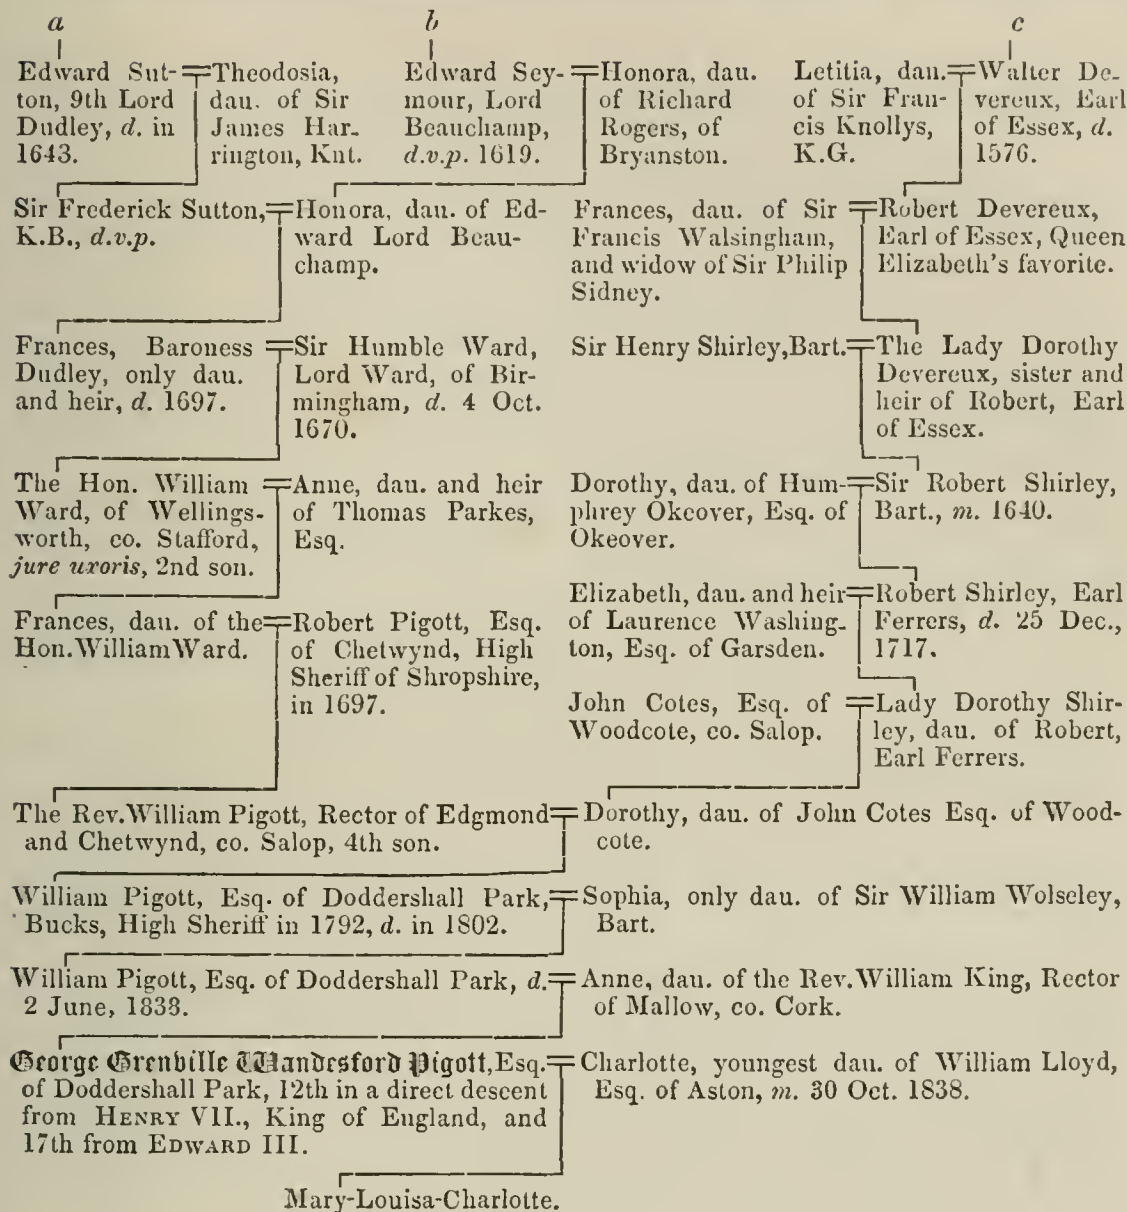 a b c
Edward Sut-
ton, 9th Lord
Dudley, d. in
1643.
Theodosia,
dau. of Sir
James Har-
rington, Knt.
Edward Sey-
mour, Lord
Beauchamp,
d.v.p. 1619.
Honora, dau.
of Richard
Rogers, of
Bryanston.
Letitia, dau.
of Sir Fran-
cis Knollys,
K.G.
Walter De-
vereux, Earl
of Essex, d.
1576.
Sir Frederick Sutton,
K.B., d.v.p.
Honora, dau. of Ed-
ward Lord Beau-
champ.
Frances, dau. of Sir
Francis Walsingham,
and widow of Sir Philip
Sidney.
Robert Devereux,
Earl of Essex, Queen
Elizabeth's favorite.
Frances, Baroness
Dudley, only dau.
and heir, d. 1697.
Sir Humble Ward,
Lord Ward, of Bir-
mingham, d. 4 Oct.
1670.
Sir Henry Shirley, Bart.
The Lady Dorothy
Devereux, sister and
heir of Robert, Earl
of Essex.
The Hon. William
Ward, of Wellings-
worth, co. Stafford,
jure uxoris, 2nd son.
Anne, dau. and heir
of Thomas Parkes,
Esq.
Dorothy, dau. of Hum-
phrey Okeover, Esq. of
Okeover.
Sir Robert Shirley,
Bart., m. 1640.
Frances, dau. of the
Hon. William Ward.
Robert Pigott, Esq.
of Chetwynd, High
Sheriff of Shropshire,
in 1697.
Elizabeth, dau. and heir
of Laurence Washing-
ton, Esq. of Garsden.
Robert Shirley, Earl
Ferrers, d. 25 Dec.,
1717.
John Cotes, Esq. of
Woodcote, co. Salop.
Lady Dorothy Shir-
ley, dau. of Robert,
Earl Ferrers.
The Rev. William Pigott, Rector of Edgmond
and Chetwynd, co. Salop, 4th son.
Dorothy, dau. of John Cotes Esq. of Wood-
cote.
William Pigott, Esq. of Doddershall Park,
Bucks, High Sheriff in 1792, d. in 1802.
Sophia, only dau. of Sir William Wolseley,
Bart.
William Pigott, Esq. of Doddershall Park, d.
2 June, 1838.
Anne, dau. of the Rev. William King, Rector
of Mallow, co. Cork.
George Grenville Wandesford Pigott, Esq.
of Doddershall Park, 12th in a direct descent
from HENRY VII., King of England, and
17th from EDWARD III.
Charlotte, youngest dau. of William Lloyd,
Esq. of Aston, m. 30 Oct. 1838.
Mary-Louisa-Charlotte.